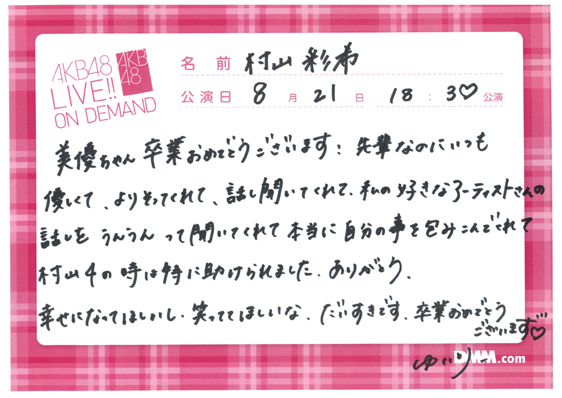 AKB48
LIVE!!
ON DEMAND
AKB
48
名前 村山彩希
公演日 8月21日 18:30公演
美優ちゃん卒業おめでとうございます! 先輩なのにいつも
優しくて、よりそってくれて、話し聞いてくれて、私の好きなアーティストさんの
話しを うんうん って聞いてくれて本当に自分の事を包みこんでくれて
村山4の時は特に助けられました、ありがとう、
幸せになってほしいし、笑っててほしいな、だいすきです、卒業おめでとう
ございます♡
ゆいりー
DMM.com